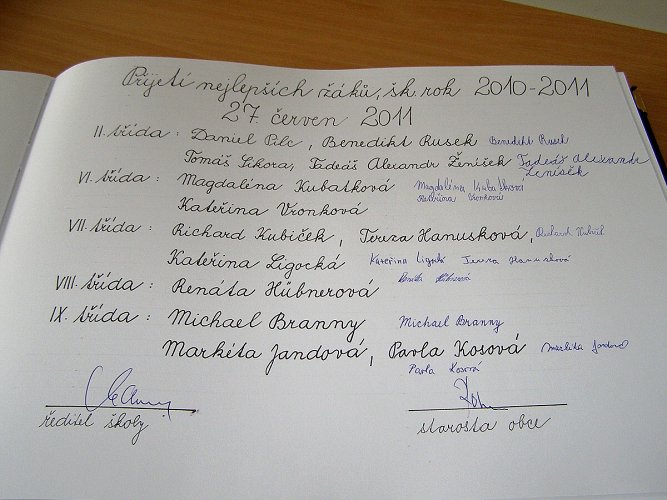 Přijetí nejlepších žáků, šk. rok 2010-2011
27. červen 2011
II. třída: Daniel Pilc, Benedikt Rusek Benedikt Rusek
Tomáš Sikora, Tadeáš Alexandr Ženíšek Tadeáš Alexandr Ženíšek
VI. třída: Magdaléna Kubatková Magdaléna Kubatková
Kateřina Vronková Kateřina Vronková
VII. třída: Richard Kubíček, Tereza Hanusková, Richard Kubíček
Kateřina Ligocká Kateřina Ligocká Tereza Hanusková
VIII. třída: Renáta Hübnerová Renáta Hübnerová
IX. třída: Michael Branny Michael Branny
Markéta Jandová, Pavla Kosová Markéta Jandová
Pavla Kosová
ředitel školy starosta obce